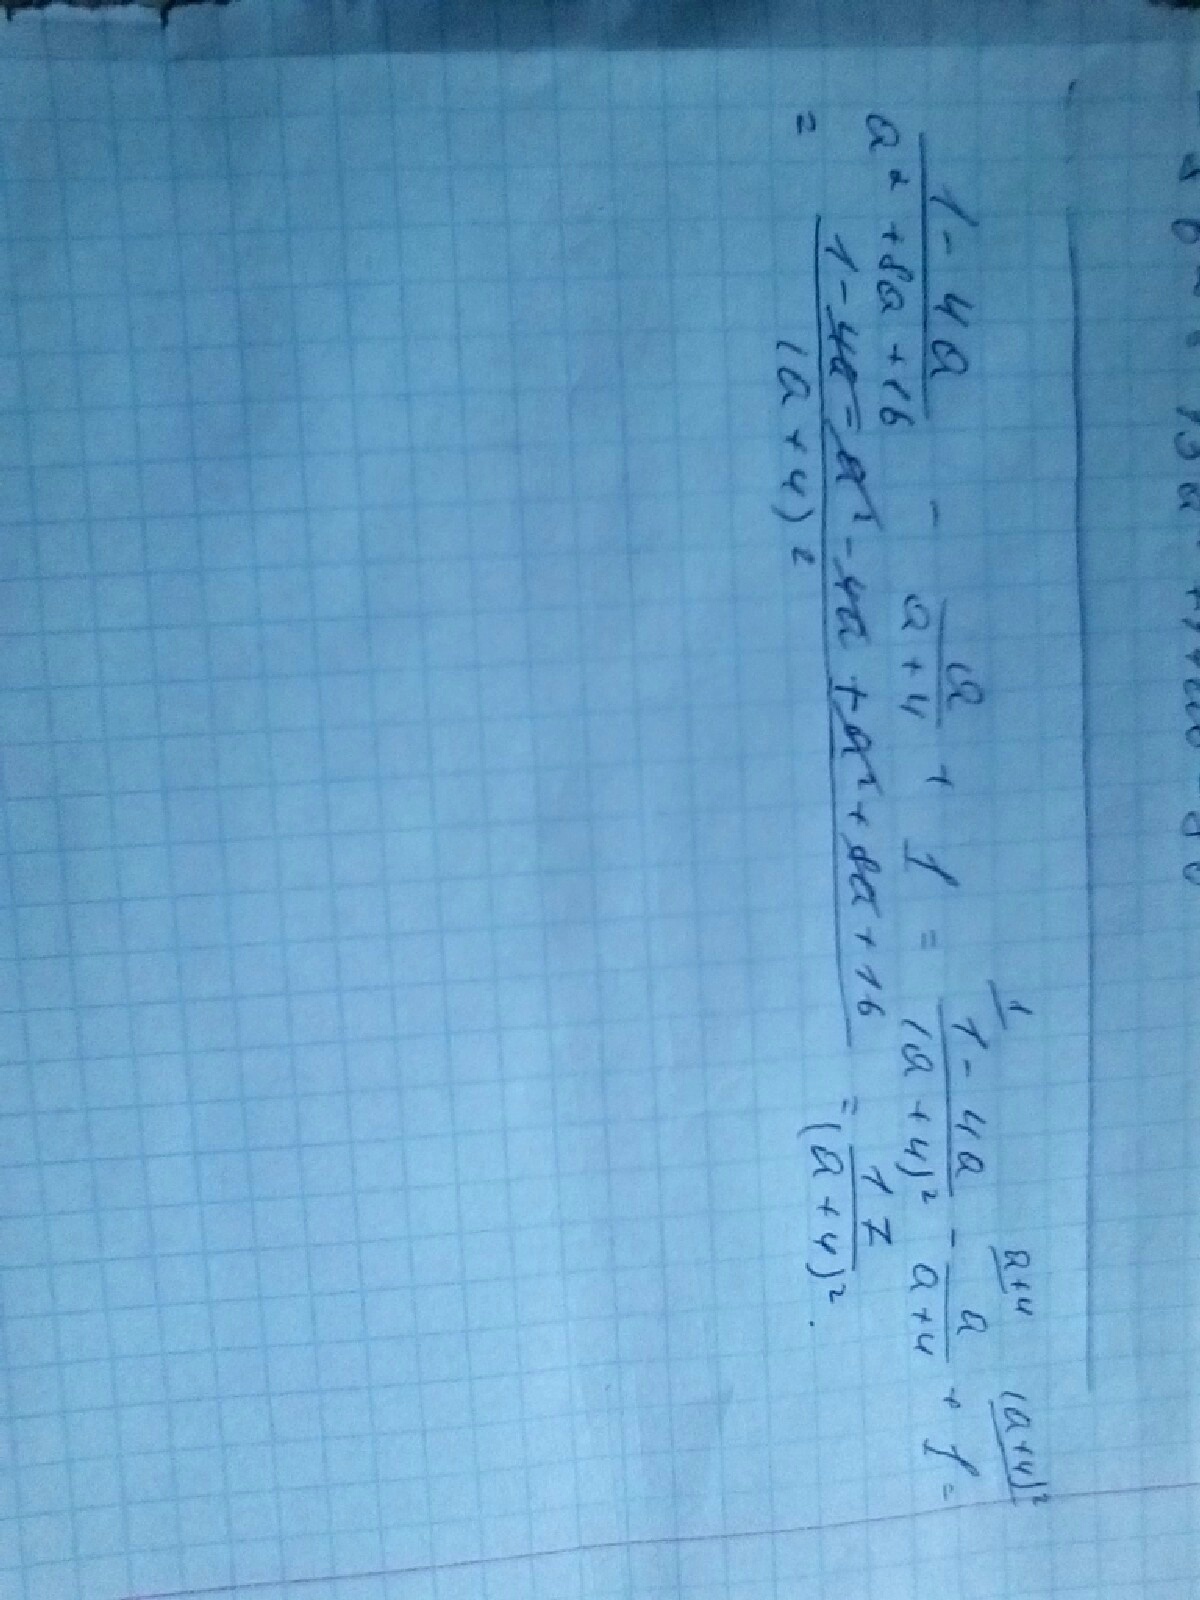 1 a+4 (a+4)²
1-4a / a²+8a+16 - a / a+4 + 1 = 1-4a / (a+4)² - a / a+4 + 1 =
= 1-4a-a²-4a+a²+8a+16 / (a+4)² = 17 / (a+4)².